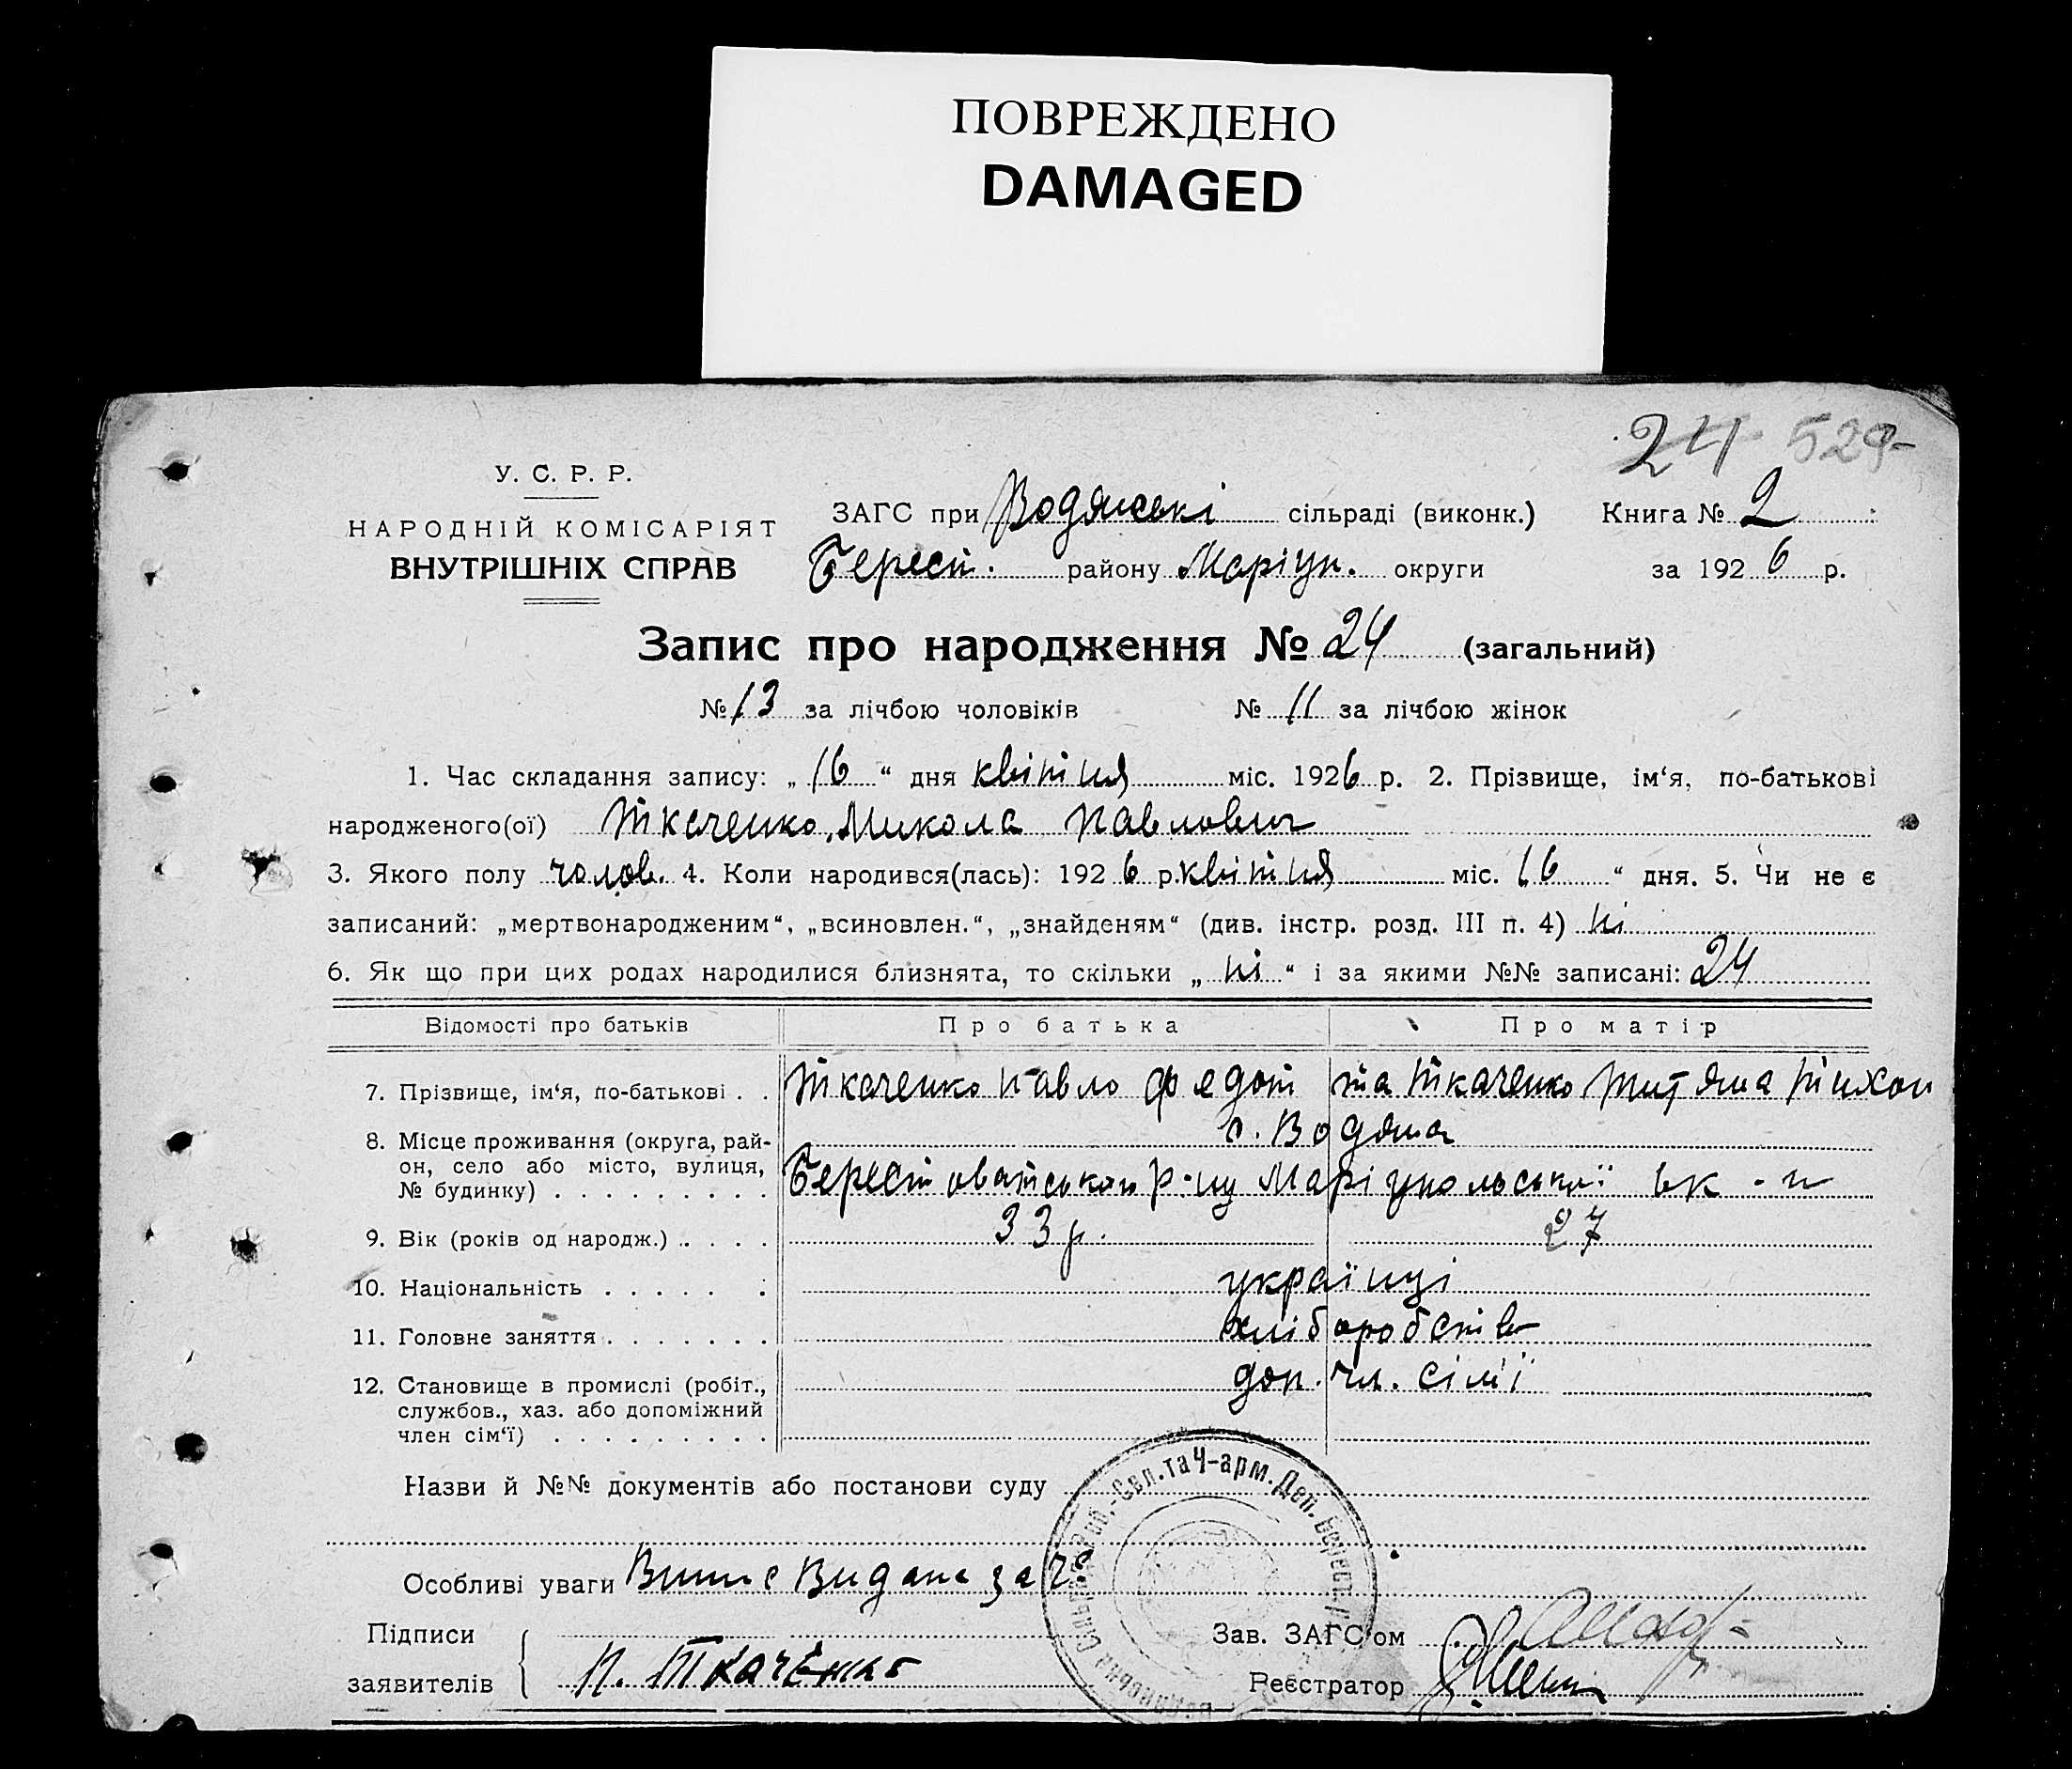 ПОВРЕЖДЕНО
DAMAGED
24 529
У. С. Р. Р.
НАРОДНІЙ КОМІСАРІЯТ
ВНУТРІШНІХ СПРАВ
ЗАГС при Водянські сільраді (виконк.) Книга № 2
Берест. району Маріуп. округи за 1926 р.
Запис про народження № 24 (загальний)
№ 13 за лічбою чоловіків № 11 за лічбою жінок
1. Час складання запису: „ 16 “ дня квітня міс. 1926 р. 2. Прізвище, ім‘я, по-батькові
народженого(ої) Ткаченко Микола Павлович
3. Якого полу чолов. 4. Коли народився(лась): 1926 р. квітня міс. 16 “ дня. 5. Чи не є
записаний: „мертвонародженим“, „всиновлен.“, „знайденям“ (див. інстр. розд. III п. 4) ні
6. Як що при цих родах народилися близнята, то скільки „ ні “ і за якими №№ записані: 24
Відомості про батьків Про батька Про матір
7. Прізвище, ім‘я, по-батькові . . Ткаченко Павло Федот та Ткаченко Титяна Тихон
8. Місце проживання (округа, рай-
он, село або місто, вулиця,
№ будинку) . . . . . . . . .
с. Водяна
Берестоватського р-ну Маріупольської ок-и
9. Вік (років од народж.) . . . . 33 р. 27
10. Національність . . . . . . українці
11. Головне заняття . . . . . . . хліборобств
12. Становище в промислі (робіт.,
службов., хаз. або допоміжний
член сім‘ї) . . . . . . . . .
доп. чл. сім'ї
Назви й №№ документів або постанови суду
Роб.-Сел. та Ч-арм. Деп. Берест.
Особливі уваги Видана за №
Підписи
заявителів
П. Ткаченко
Зав. ЗАГС‘ом
Реєстратор